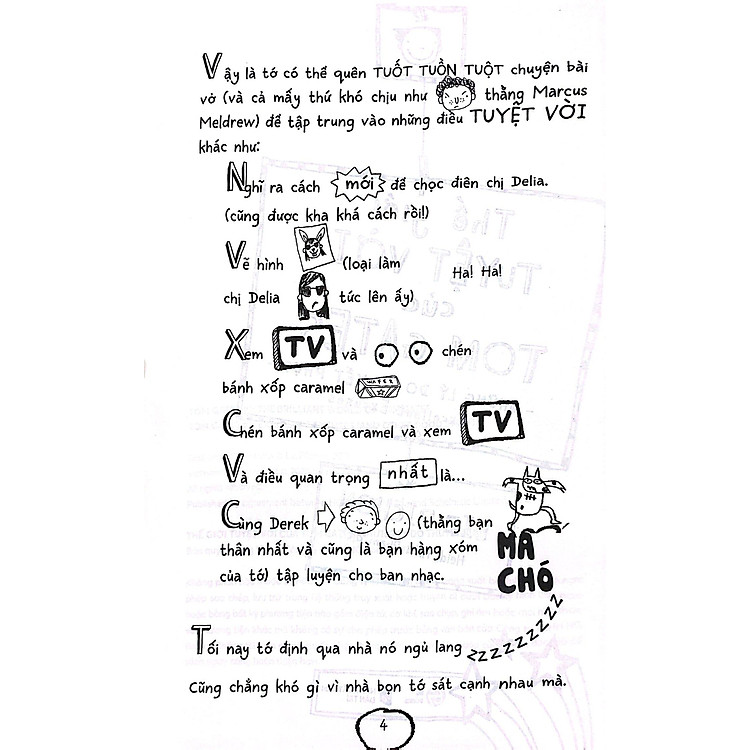 Vậy là tớ có thể quên TUỐT TUỒN TUỘT chuyện bài
vở (và cả mấy thứ khó chịu như thằng Marcus
Meldrew) để tập trung vào những điều TUYỆT VỜI
khác như:
Nghĩ ra cách mới để chọc điên chị Delia.
(cũng được kha khá cách rồi!)
Vẽ hình (loại làm
Ha! Ha!
chị Delia tức lên ấy)
Xem TV và chén
bánh xốp caramel WAFER
Chén bánh xốp caramel và xem TV
Và điều quan trọng nhất là...
Cùng Derek (thằng bạn
thân nhất và cũng là bạn hàng xóm
của tớ) tập luyện cho ban nhạc.
MA
CHÓ
Tối nay tớ định qua nhà nó ngủ lang zzzzzzzzzz
Cũng chẳng khó gì vì nhà bọn tớ sát cạnh nhau mà.
4